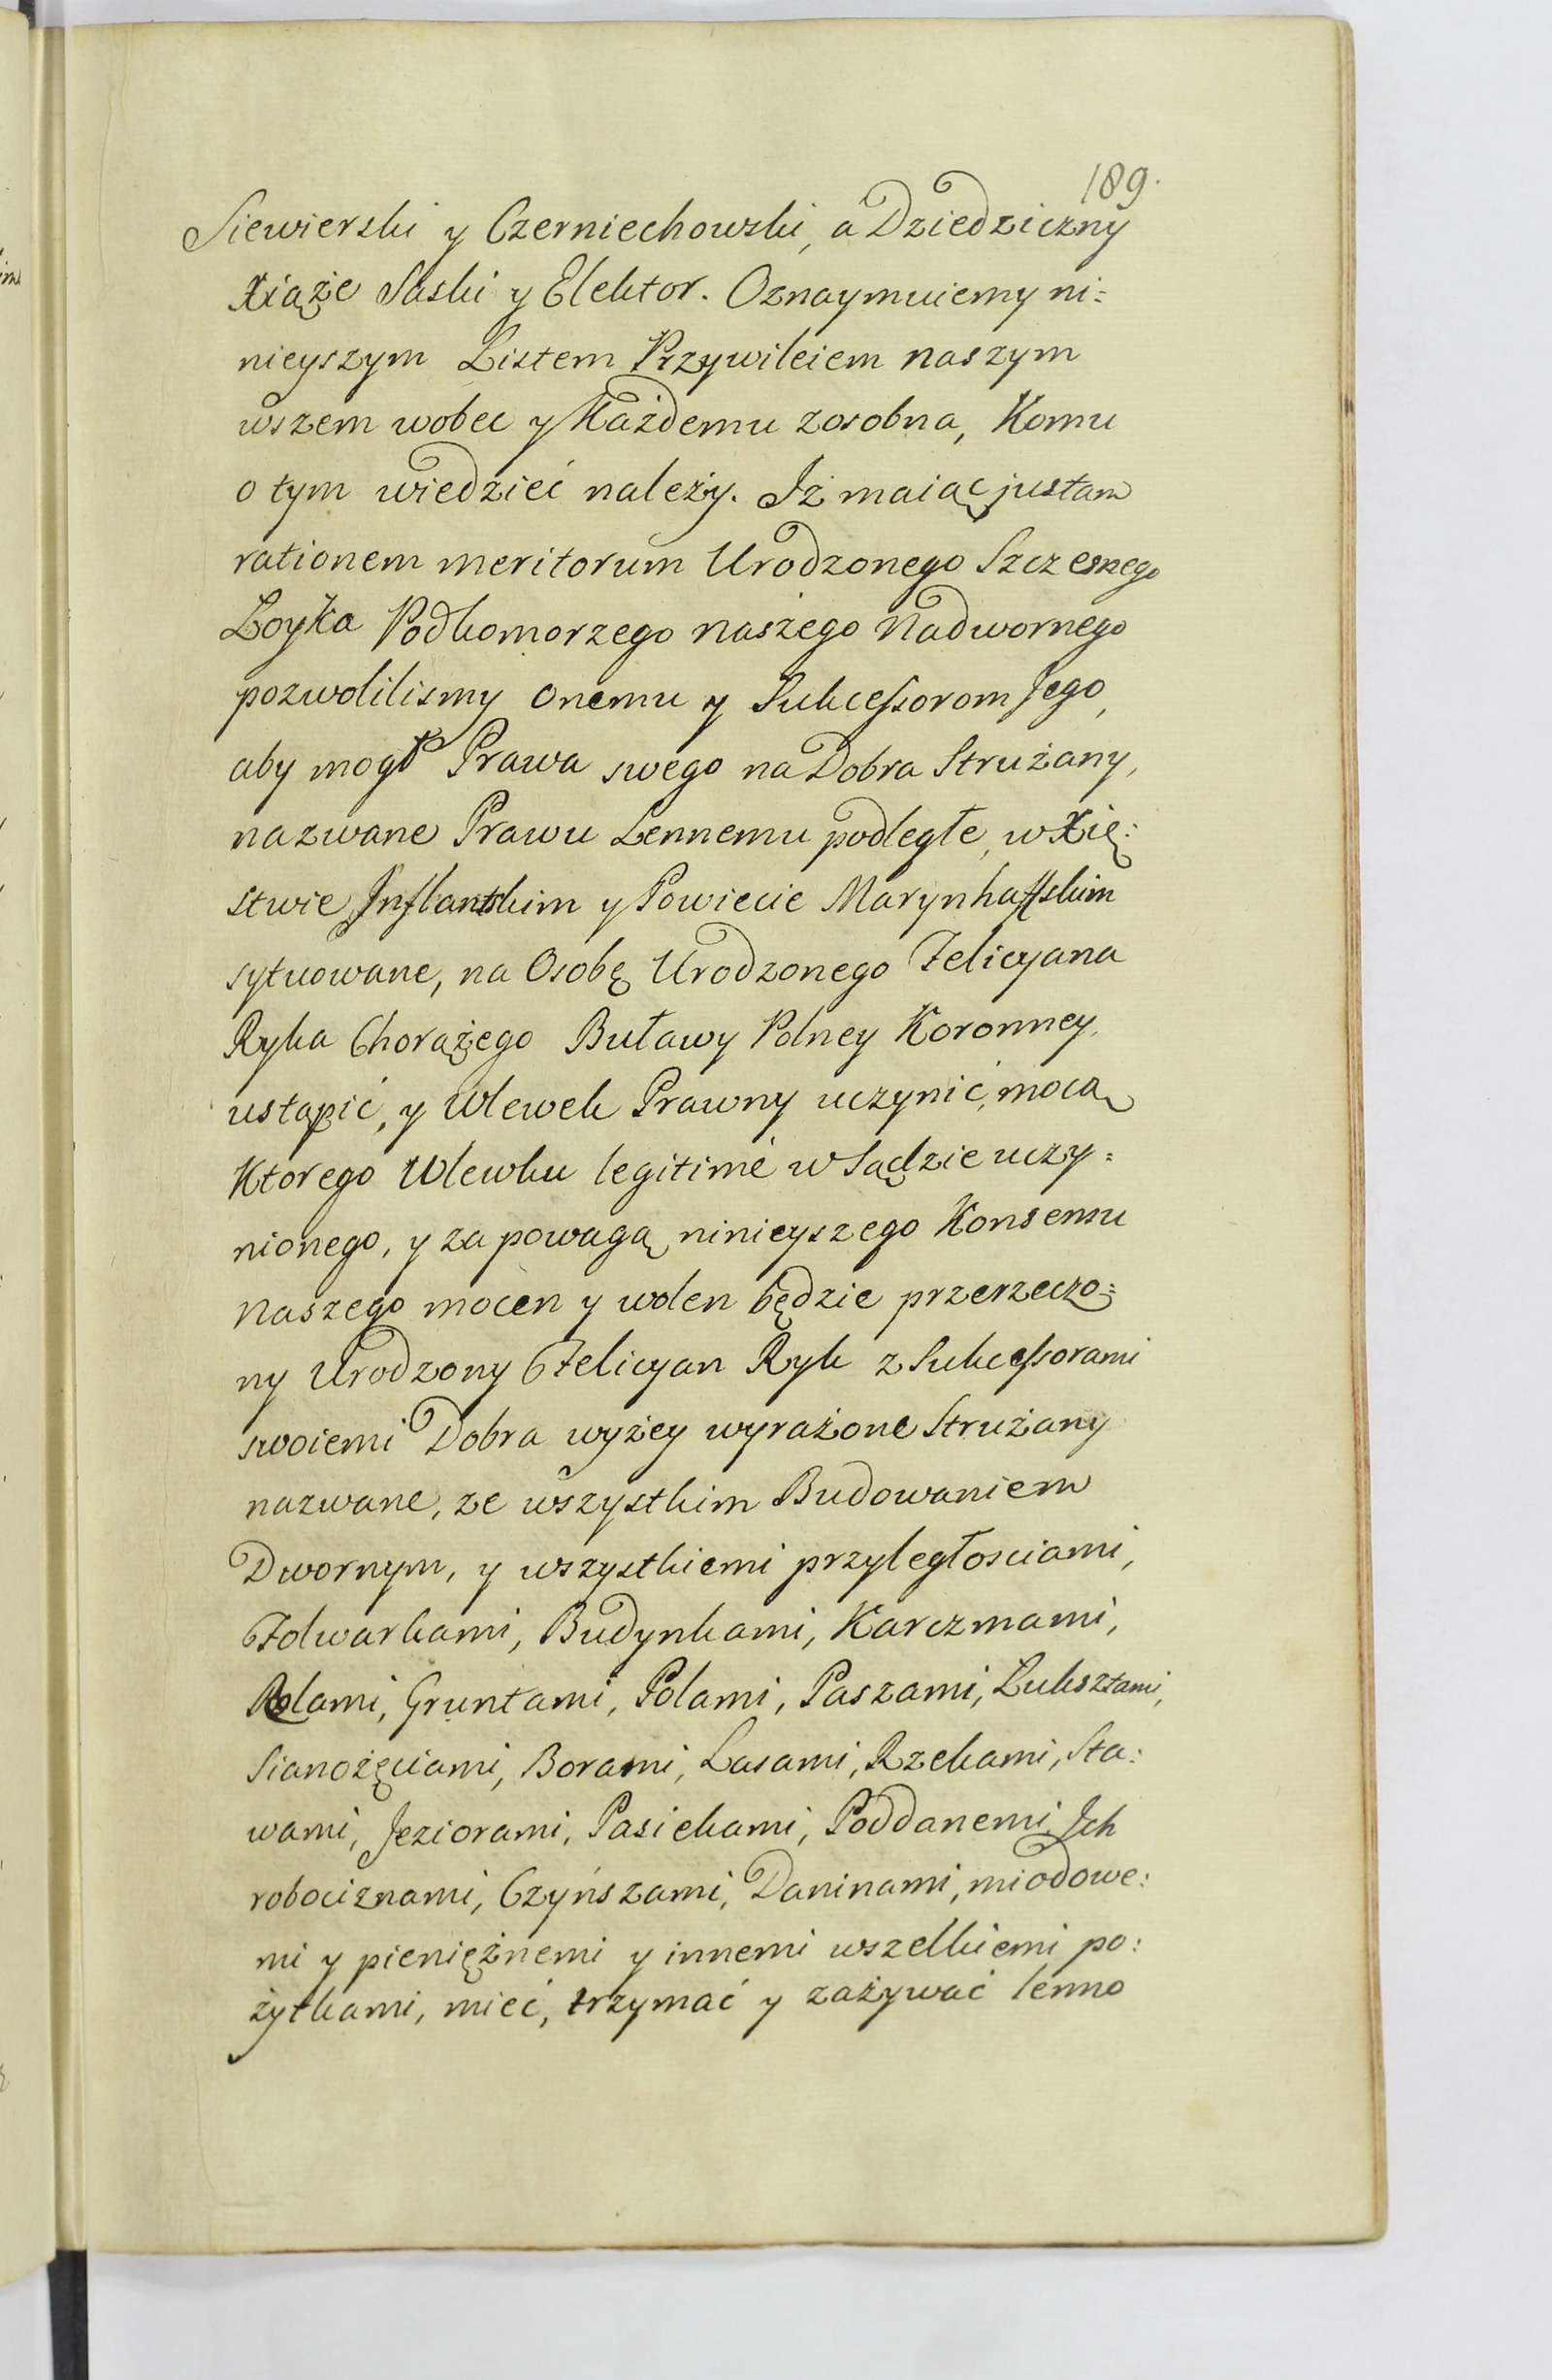 189.
Siewierski y Czerniechowski, a Dziedziczny
Xiąże Saski y Elektor. Oznaymuiemy ni:
nieyszym Listem Przywileiem naszym
wszem wobec y Każdemu zosobna, Komu
o tym wiedzieć należy. Iż maiąc justam
rationem meritorum Urodzonego Szczesnego
Łoyka Podkomorzego naszego Nadwornego
pozwolilismy onemu y Sukcessorom Jego,
aby mogł Prawa swego na Dobra Strużany,
nazwane Prawu Lennemu podległe, w Xię:
stwie Inflantskim y Powiecie Marynhaffskim
sytuowane, na Osobę Urodzonego Felicyana
Ryka Chorążego Buławy Polney Koronney,
ustąpić, y Wlewek Prawny uczynić, mocą
Ktorego Wlewku legitimè w Sądzie uczy:
nionego, y za powagą ninieyszego Konsensu
Naszego mocen y wolen będzie przerzeczo:
ny Urodzony Felicyan Ryk z Sukcessorami
swoiemi Dobra wyżey wyrażone Strużany
nazwane, ze wszystkim Budowaniem
Dwornym, y wszystkiemi przyległosciami,
Folwarkami, Budynkami, Karczmami,
Rolami, Gruntami, Polami, Paszami, Luksztami,
Sianożęciami, Borami, Lasami, Rzekami, Sta:
wami, Jeziorami, Pasiekami, Poddanemi, Ich
robociznami, Czyńszami, Daninami, miodowe:
mi y pieniężnemi y innemi wszelkiemi po:
żytkami, mieć, trzymać y zażywać lenno